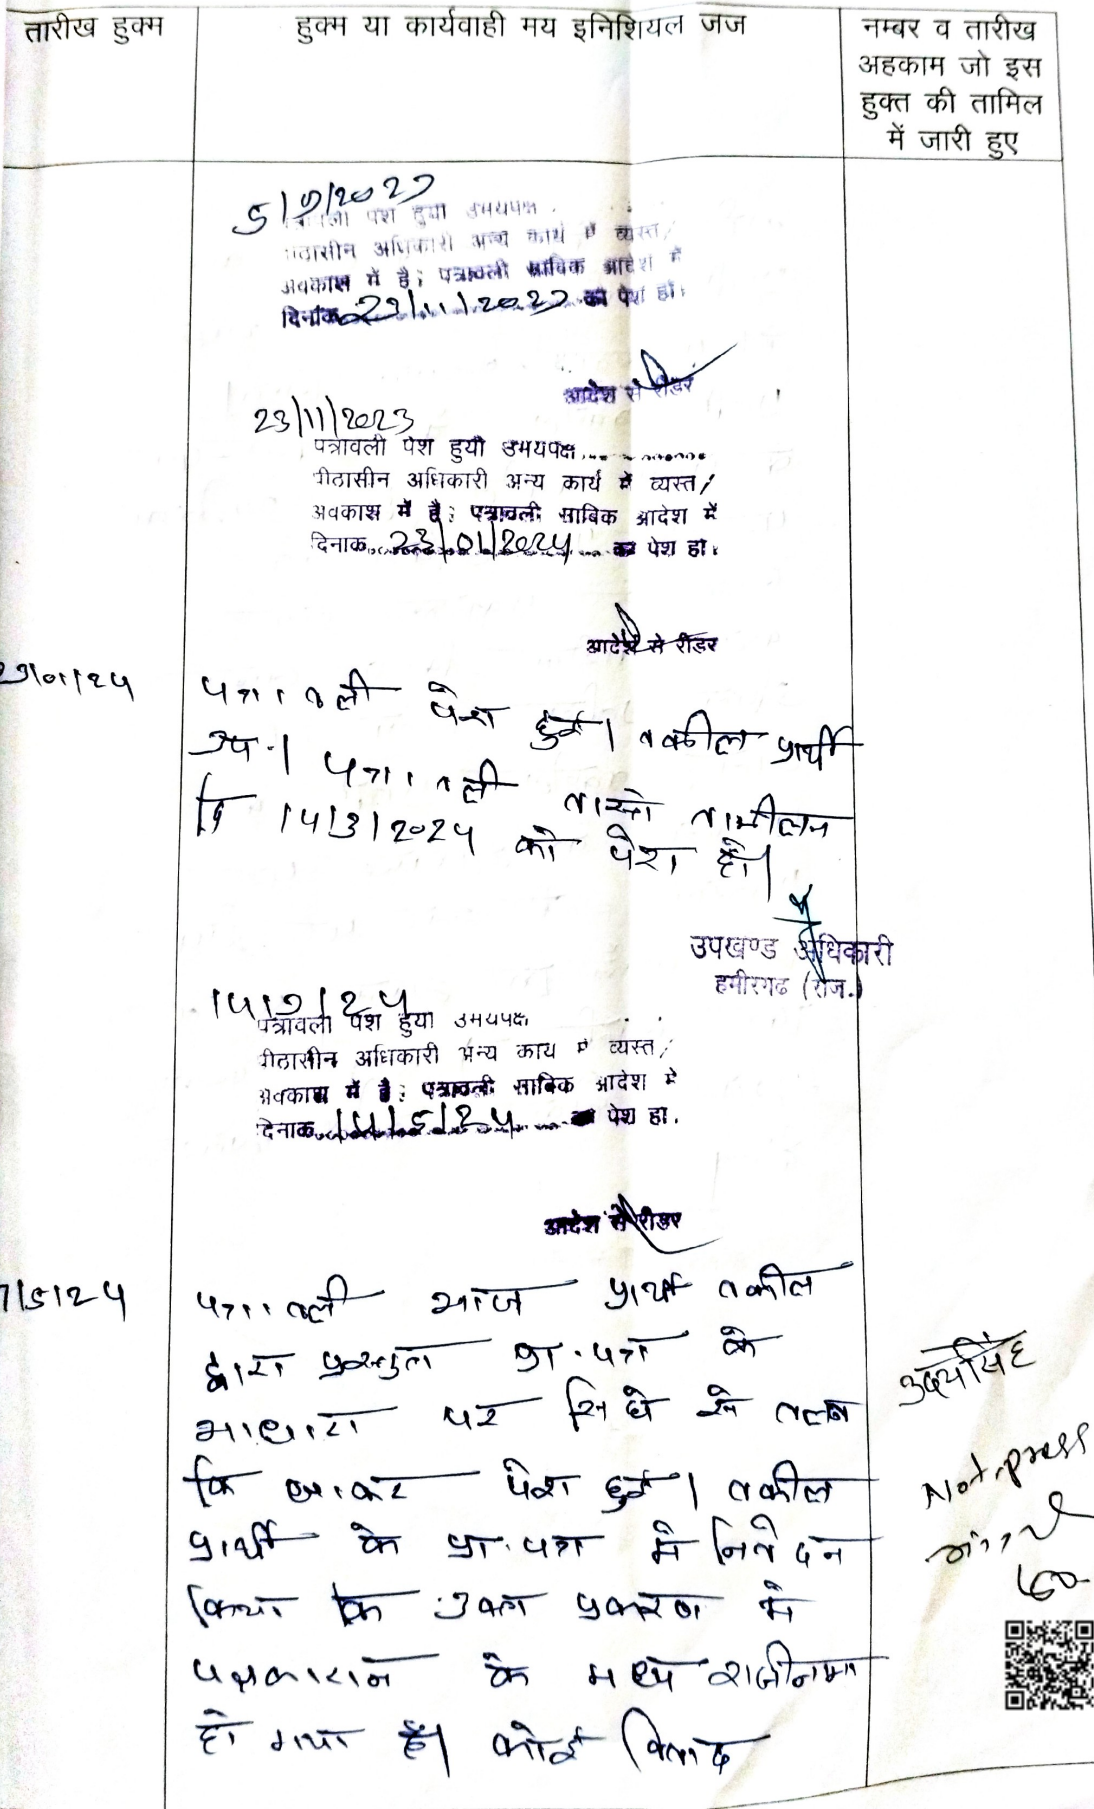 तारीख हुक्म
हुक्म या कार्यवाही मय इनिशियल जज
नम्बर व तारीख
अहकाम जो इस
हुक्त की तामिल
में जारी हुए
पत्रावली पेश हुयी उभयपक्ष
पीठासीन अधिकारी अन्य कार्य में व्यस्त/
अवकाश में है; पत्रावली साबिक आदेश में
दिनांक 23/11/2023 को पेश हो।
आदेश से रीडर
23/11/2023
पत्रावली पेश हुयी उभयपक्ष
पीठासीन अधिकारी अन्य कार्य में व्यस्त/
अवकाश में है; पत्रावली साबिक आदेश में
दिनांक 23/01/2024 को पेश हो।
आदेश से रीडर
पत्रावली पेश हुई। वकील प्रार्थी
उप.। पत्रावली वास्ते तामील
दि 14/3/2024 को पेश हो।
उपखण्ड अधिकारी
हमीरगढ (राज.)
14/3/24
पत्रावली पेश हुयी उभयपक्ष
पीठासीन अधिकारी अन्य कार्य में व्यस्त/
अवकाश में है; पत्रावली साबिक आदेश में
दिनांक 14/5/24 को पेश हो.
आदेश से रीडर
पत्रावली आज प्रार्थी वकील
द्वारा प्रस्तुत प्रा.पत्र के
आधार पर सिधे से तलब
कि जाकर पेश हुई। वकील
प्रार्थी के प्रा.पत्र में निवेदन
किया कि उक्त प्रकरण में
पक्षकारान के मध्य राजीनामा
हो गया है। कोई विवाद
उदयसिंह
Not press